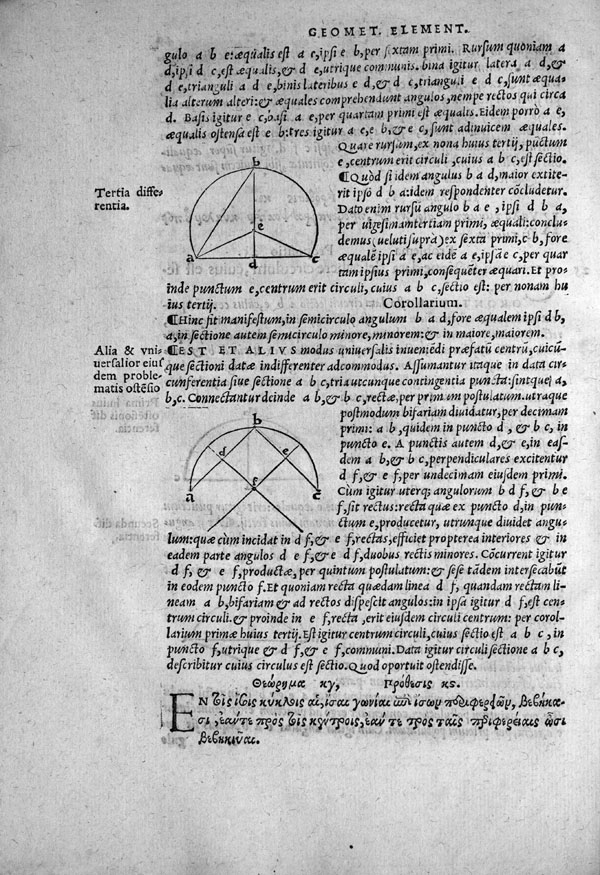 GEOMET. ELEMENT.
gulo a b e: æqualis est a e, ipsi e b, per sextam primi. Rursum quoniam a
d, ipsi d c, est æqualis, & d e, utrique communis. bina igitur latera a d, &
d e, trianguli a d e, binis lateribus e d, & d c, trianguli e d c, sunt æqua-
lia alterum alteri: & æquales comprehendunt angulos, nempe rectos qui circa
d. Basis igitur e c, basi a e, per quartam primi est æqualis. Eidem porrò a e,
æqualis ostensa est e b: tres igitur a e, e b, & e c, sunt adinuicem æquales.
Quare rursum, ex nona huius tertij, pũctum
e, centrum erit circuli, cuius a b c, est sectio.
¶Quòd si idem angulus b a d, maior extite-
rit ipsò d b a: idem respondenter cõcludetur.
Tertia diffe-
rentia.
Dato enim rursũ angulo b a e, ipsi d b a,
per uigesimamtertiam primi, æquali: conclu-
demus (ueluti supra) ex sexta primi, e b, fore
æqualẽ ipsi a e, ac eidẽ a e, ipsã e c, per quar
tam ipsius primi, consequẽter æquari. Et pro-
b
e
a d c
inde punctum e, centrum erit circuli, cuius a b c, sectio est: per nonam hu
ius tertij. Corollarium.
¶Hinc fit manifestum, in semicirculo angulum b a d, fore æqualem ipsi d b,
a, in sectione autem semicirculo minore, minorem: & in maiore, maiorem.
Alia & vni-
uersalior eius
dem proble-
matis ostẽsio
¶EST ET ALIVS modus uniuersalis inueniẽdi præfatũ centrũ, cuicũ-
que sectioni datæ indifferenter adcommodus. Assumantur itaque in data cir-
cunferentia siue sectione a b c, tria utcunque contingentia puncta: sintque a,
b, c. Connectantur deinde a b, & b c, rectæ, per primum postulatum. utraque
postmodum bifariam diuidatur, per decimam
primi: a b, quidem in puncto d, & b c, in
puncto e. A punctis autem d, & e, in eas-
dem a b, & b c, perpendiculares excitentur
d f, & e f, per undecimam eiusdem primi.
Cùm igitur uterq; angulorum b d f, & b e
f, sit rectus: recta quæ ex puncto d, in pun-
ctum e, producetur, utrunque diuidet angu-
b
d e
a f c
lum: quæ cùm incidat in d f, & e f, rectas, efficiet propterea interiores & in
eadem parte angulos d e f, & e d f, duobus rectis minores. Cõcurrent igitur
d f, & e f, productæ, per quintum postulatum: & sese tãdem intersecabũt
in eodem puncto f. Et quoniam recta quædam linea d f, quandam rectam li-
neam a b, bifariam & ad rectos dispescit angulos: in ipsa igitur d f, est cen-
trum circuli. & proinde in e f, recta, erit eiusdem circuli centrum: per corol-
larium primæ huius tertij. Est igitur centrum circuli, cuius sectio est a b c, in
puncto f, utrique & d f, & e f, communi. Data igitur circuli sectione a b c,
describitur cuius circulus est sectio. Quod oportuit ostendisse.
Θεώρημα κγ, Πρόθεσις κς.
ΕΝ τοῖς ἴσοις κύκλοις αἱ, ἴσαι γωνίαι ἐπὶ ἴσων περιφερειῶν, βεβήκα-
σι, ἐάντε πρὸς τοῖς κέντροις, ἐάν τε πρὸς ταῖς περιφερείαις ὦσι
βεβηκυῖαι.